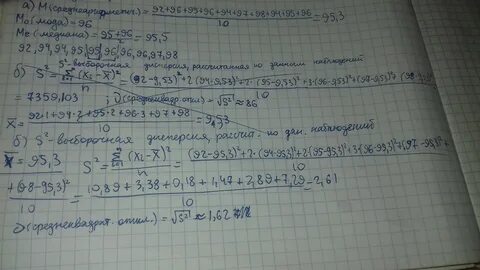 а) M(среднеарифметич.) = (92+96+95+96+94+97+98+94+95+96)/10 = 95,3
Mo(мода) = 96
Me(медиана) = (95+96)/2 = 95,5
92, 94, 94, 95, 95, 96, 96, 96, 97, 98
б) S² - выборочная дисперсия, рассчитанная по данным наблюдений
S² = Σ(Xi - X̄)²/n = ((92-9,53)² + 2·(94-9,53)² + 2·(95-9,53)² + 3·(96-9,53)² + (97-9,53)² + (98-
= 7359,103 ; δ(среднеквадр. откл) = √S² ≈ 86
X̄ = (92·1+94·2+95·2+96·3+97+98)/10 = 9,53
б) S² - выборочная дисперсия, рассчит. по дан. наблюдений
X̄ = 95,3 S² = Σ(Xi - X̄)²/n = ((92-95,3)² + 2·(94-95,3)² + 2(95-95,3)² + 3(96-95,3)² + (97-95,3)² +
+(98-95,3)²)/10 = (10,89+3,38+0,18+1,47+2,89+7,29)/10 = 2,61
δ(среднеквадрат. откл.) = √S² ≈ 1,62